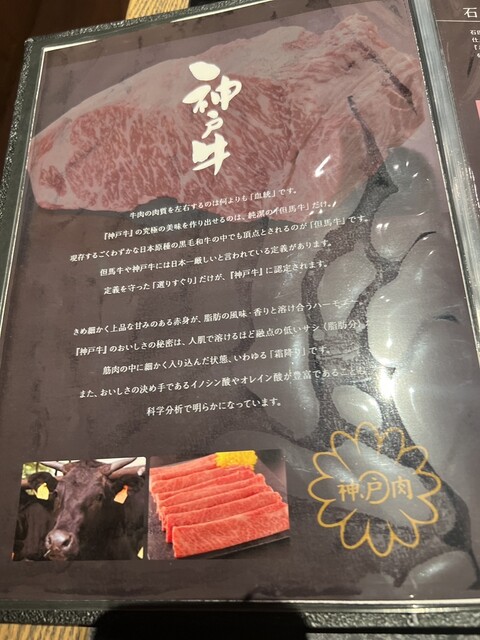 神戸牛
牛肉の肉質を左右するのは何よりも「血統」です。
『神戸牛』の究極の美味を作り出せるのは、純潔の「但馬牛」だけ。
現存するごくわずかな日本原種の黒毛和牛の中でも頂点とされるのが「但馬牛」です。
但馬牛や神戸牛には日本一厳しいと言われている定義があります。
定義を守った「選りすぐり」だけが、『神戸牛』に認定されます。
きめ細かく上品な甘みのある赤身が、脂肪の風味・香りと溶け合うハーモニー。
『神戸牛』のおいしさの秘密は、人肌で溶けるほど融点の低いサシ（脂肪分）が
筋肉の中に細かく入り込んだ状態、いわゆる「霜降り」です。
また、おいしさの決め手であるイノシン酸やオレイン酸が豊富であることも
科学分析で明らかになっています。
神戸肉
石